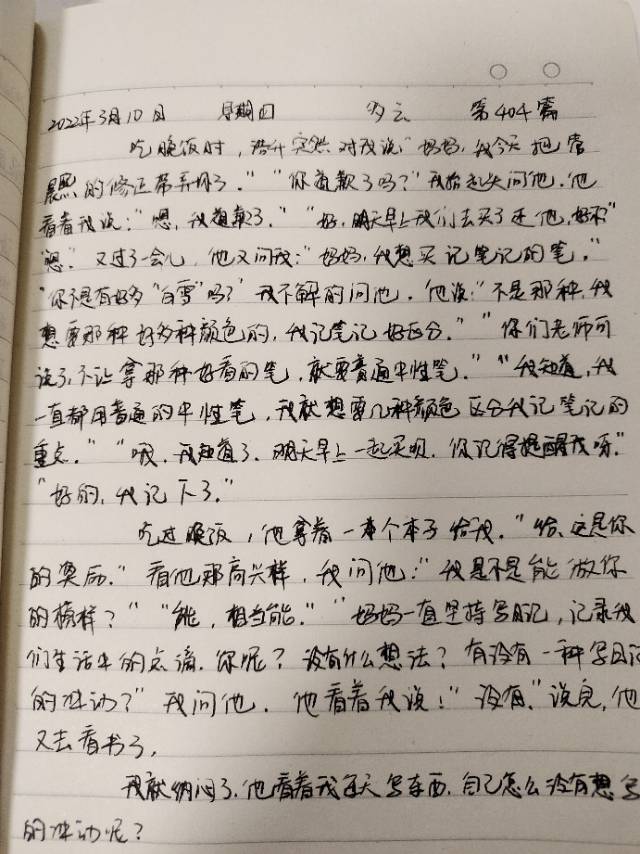 2022年3月10日 星期四 多云 第404篇
吃晚饭时,浩升突然对我说:"妈妈,我今天把常
熙的修正带弄坏了。""你道歉了吗?"我抬起头问他。他
看着我说:"嗯,我道歉了。""好,明天早上我们去买了还他,好不"
"嗯。"又过了一会儿,他又问我:"妈妈,我想买记笔记的笔。"
"你不是有好多"白雪"吗?"我不解的问他。他说:"不是那种,我
想要那种好多种颜色的,我记笔记好区分。""你们老师可
说了,不让拿那种好看的笔,就要普通中性笔。""我知道,我
一直都用普通的中性笔,我就想要几种颜色区分我记笔记的
重点。""哦,我知道了。明天早上一起买呗,你记得提醒我呀。"
"好的,我记下了。"
吃过晚饭,他拿着一本个本子给我。"给,这是你
的奖励。"看他那高兴样,我问他:"我是不是能做你
的榜样?""能,相当能。""妈妈一直坚持写日记,记录我
们生活中的点滴,你呢?没有什么想法?有没有一种写日记
的冲动?"我问他。他看着我说:"没有。"说完,他
又去看书了。
我就纳闷了,他看着我每天写东西,自己怎么没有想写
的冲动呢?